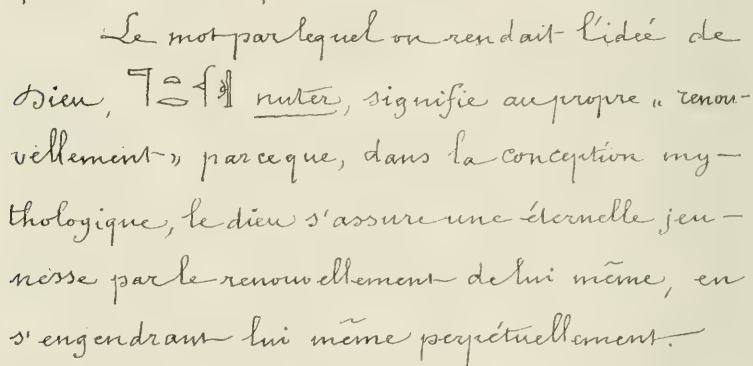 Le mot par lequel on rendait l'idée de
Dieu, 𓊹𓏏𓂋 nuter, signifie au propre „ renou-
vellement „ parceque, dans la conception my-
thologique, le dieu s'assure une éternelle jeu-
nesse par le renouvellement de lui même, en
s'engendrant lui même perpétuellement.